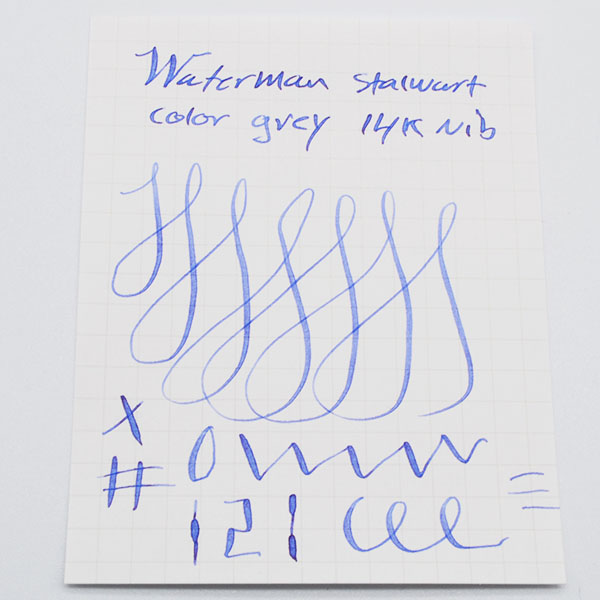 Waterman Stalwart
color grey 14K Nib
X
#
121